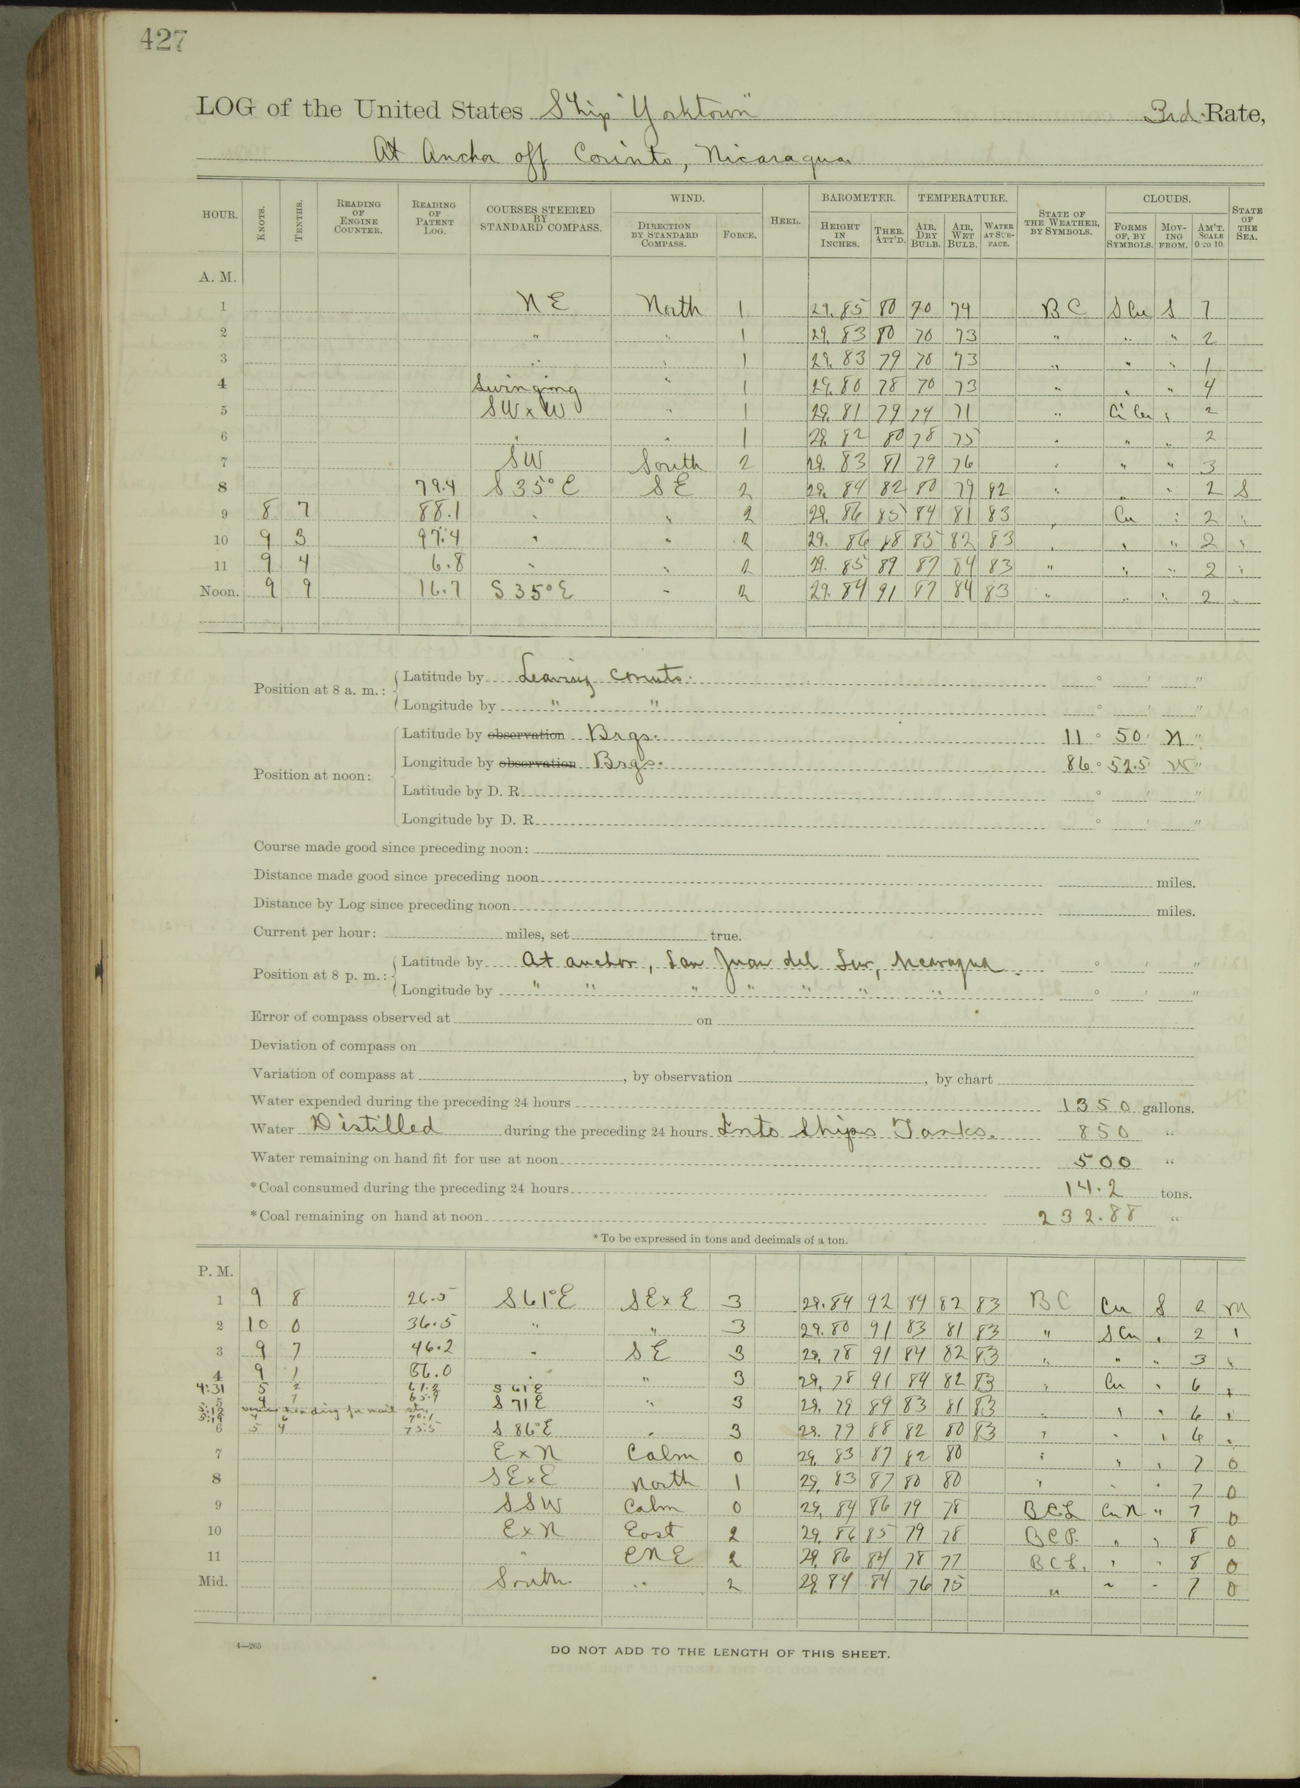 427
LOG of the United States Ship "Yorktown" 3rd Rate,
At Anchor off Corinto, Nicaragua
HOUR. KNOTS. TENTHS. READING OF ENGINE COUNTER. READING OF PATENT LOG. COURSES STEERED BY STANDARD COMPASS. WIND. DIRECTION BY STANDARD COMPASS. FORCE. HEEL. BAROMETER. HEIGHT IN INCHES. THER. ATT'D. TEMPERATURE. AIR, DRY BULB. AIR, WET BULB. WATER AT SUR-FACE. STATE OF THE WEATHER, BY SYMBOLS. CLOUDS. FORMS OF, BY SYMBOLS. MOV-ING FROM. AM'T. SCALE 0 TO 10. STATE OF THE SEA.
A. M.
1 NE North 1 29.85 80 70 74 BC S Cu S 7
2 " " 1 29.83 80 70 73 " " " 2
3 " " 1 29.83 79 70 73 " " " 1
4 Swinging " 1 29.80 78 70 73 " " " 4
5 SW x W " 1 29.81 79 74 71 " Ci Cu " 2
6 " " 1 29.82 80 78 75 " " " 2
7 SW South 2 29.83 81 79 76 " " " 3
8 79.4 S 35° E SE 2 29.84 82 80 79 82 " " " 2 S
9 8 7 88.1 " " 2 29.86 85 84 81 83 " Cu " 2 "
10 9 3 97.4 " " 2 29.86 88 85 82 83 " " " 2 "
11 9 4 6.8 " " 2 29.85 89 87 84 83 " " " 2 "
Noon. 9 9 16.7 S 35° E " 2 29.84 91 87 84 83 " " " 2 "
Position at 8 a. m.: Latitude by Leaving Corinto. ° ' "
Longitude by " " ° ' "
Position at noon: Latitude by observation Brgs. 11 ° 50 ' N "
Longitude by observation Brgs. 86 ° 52.5 ' W "
Latitude by D. R. ° ' "
Longitude by D. R. ° ' "
Course made good since preceding noon:
Distance made good since preceding noon miles.
Distance by Log since preceding noon miles.
Current per hour: miles, set true.
Position at 8 p. m.: Latitude by At anchor, San Juan del Sur, Nicaragua. ° ' "
Longitude by " " " " " " " ° ' "
Error of compass observed at on
Deviation of compass on
Variation of compass at , by observation , by chart
Water expended during the preceding 24 hours 1350 gallons.
Water Distilled during the preceding 24 hours Into Ships Tanks. 850 "
Water remaining on hand fit for use at noon 500 "
*Coal consumed during the preceding 24 hours 14.2 tons.
*Coal remaining on hand at noon 232.88 "
*To be expressed in tons and decimals of a ton.
P. M.
1 9 8 26.5 S 61° E SE x E 3 29.84 92 84 82 83 BC Cu S 2 M
2 10 0 36.5 " " 3 29.80 91 83 81 83 " S Cu " 2 "
3 9 7 46.2 " SE 3 29.78 91 84 82 83 " " " 3 "
4 9 1 56.0 " " 3 29.78 91 84 82 83 " Cu " 6 "
4:31 5 S 61 E
5 4 7 S 71 E " 3 29.79 89 83 81 83 " " " 6 "
5:12 heading for mail str.
6 5 4 75.5 S 86° E " 3 29.79 88 82 80 83 " " " 6 "
7 E x N Calm 0 29.83 87 82 80 " " " 7 0
8 SE x E North 1 29.83 87 80 80 " " " 7 0
9 SSW Calm 0 29.84 86 79 78 BCL Cu N " 7 0
10 E x N East 2 29.86 85 79 78 BCP. " " 8 0
11 " ENE 2 29.86 84 78 77 BCL. " " 8 0
Mid. South " 2 29.84 84 76 75 " " " 7 0
4—265
DO NOT ADD TO THE LENGTH OF THIS SHEET.